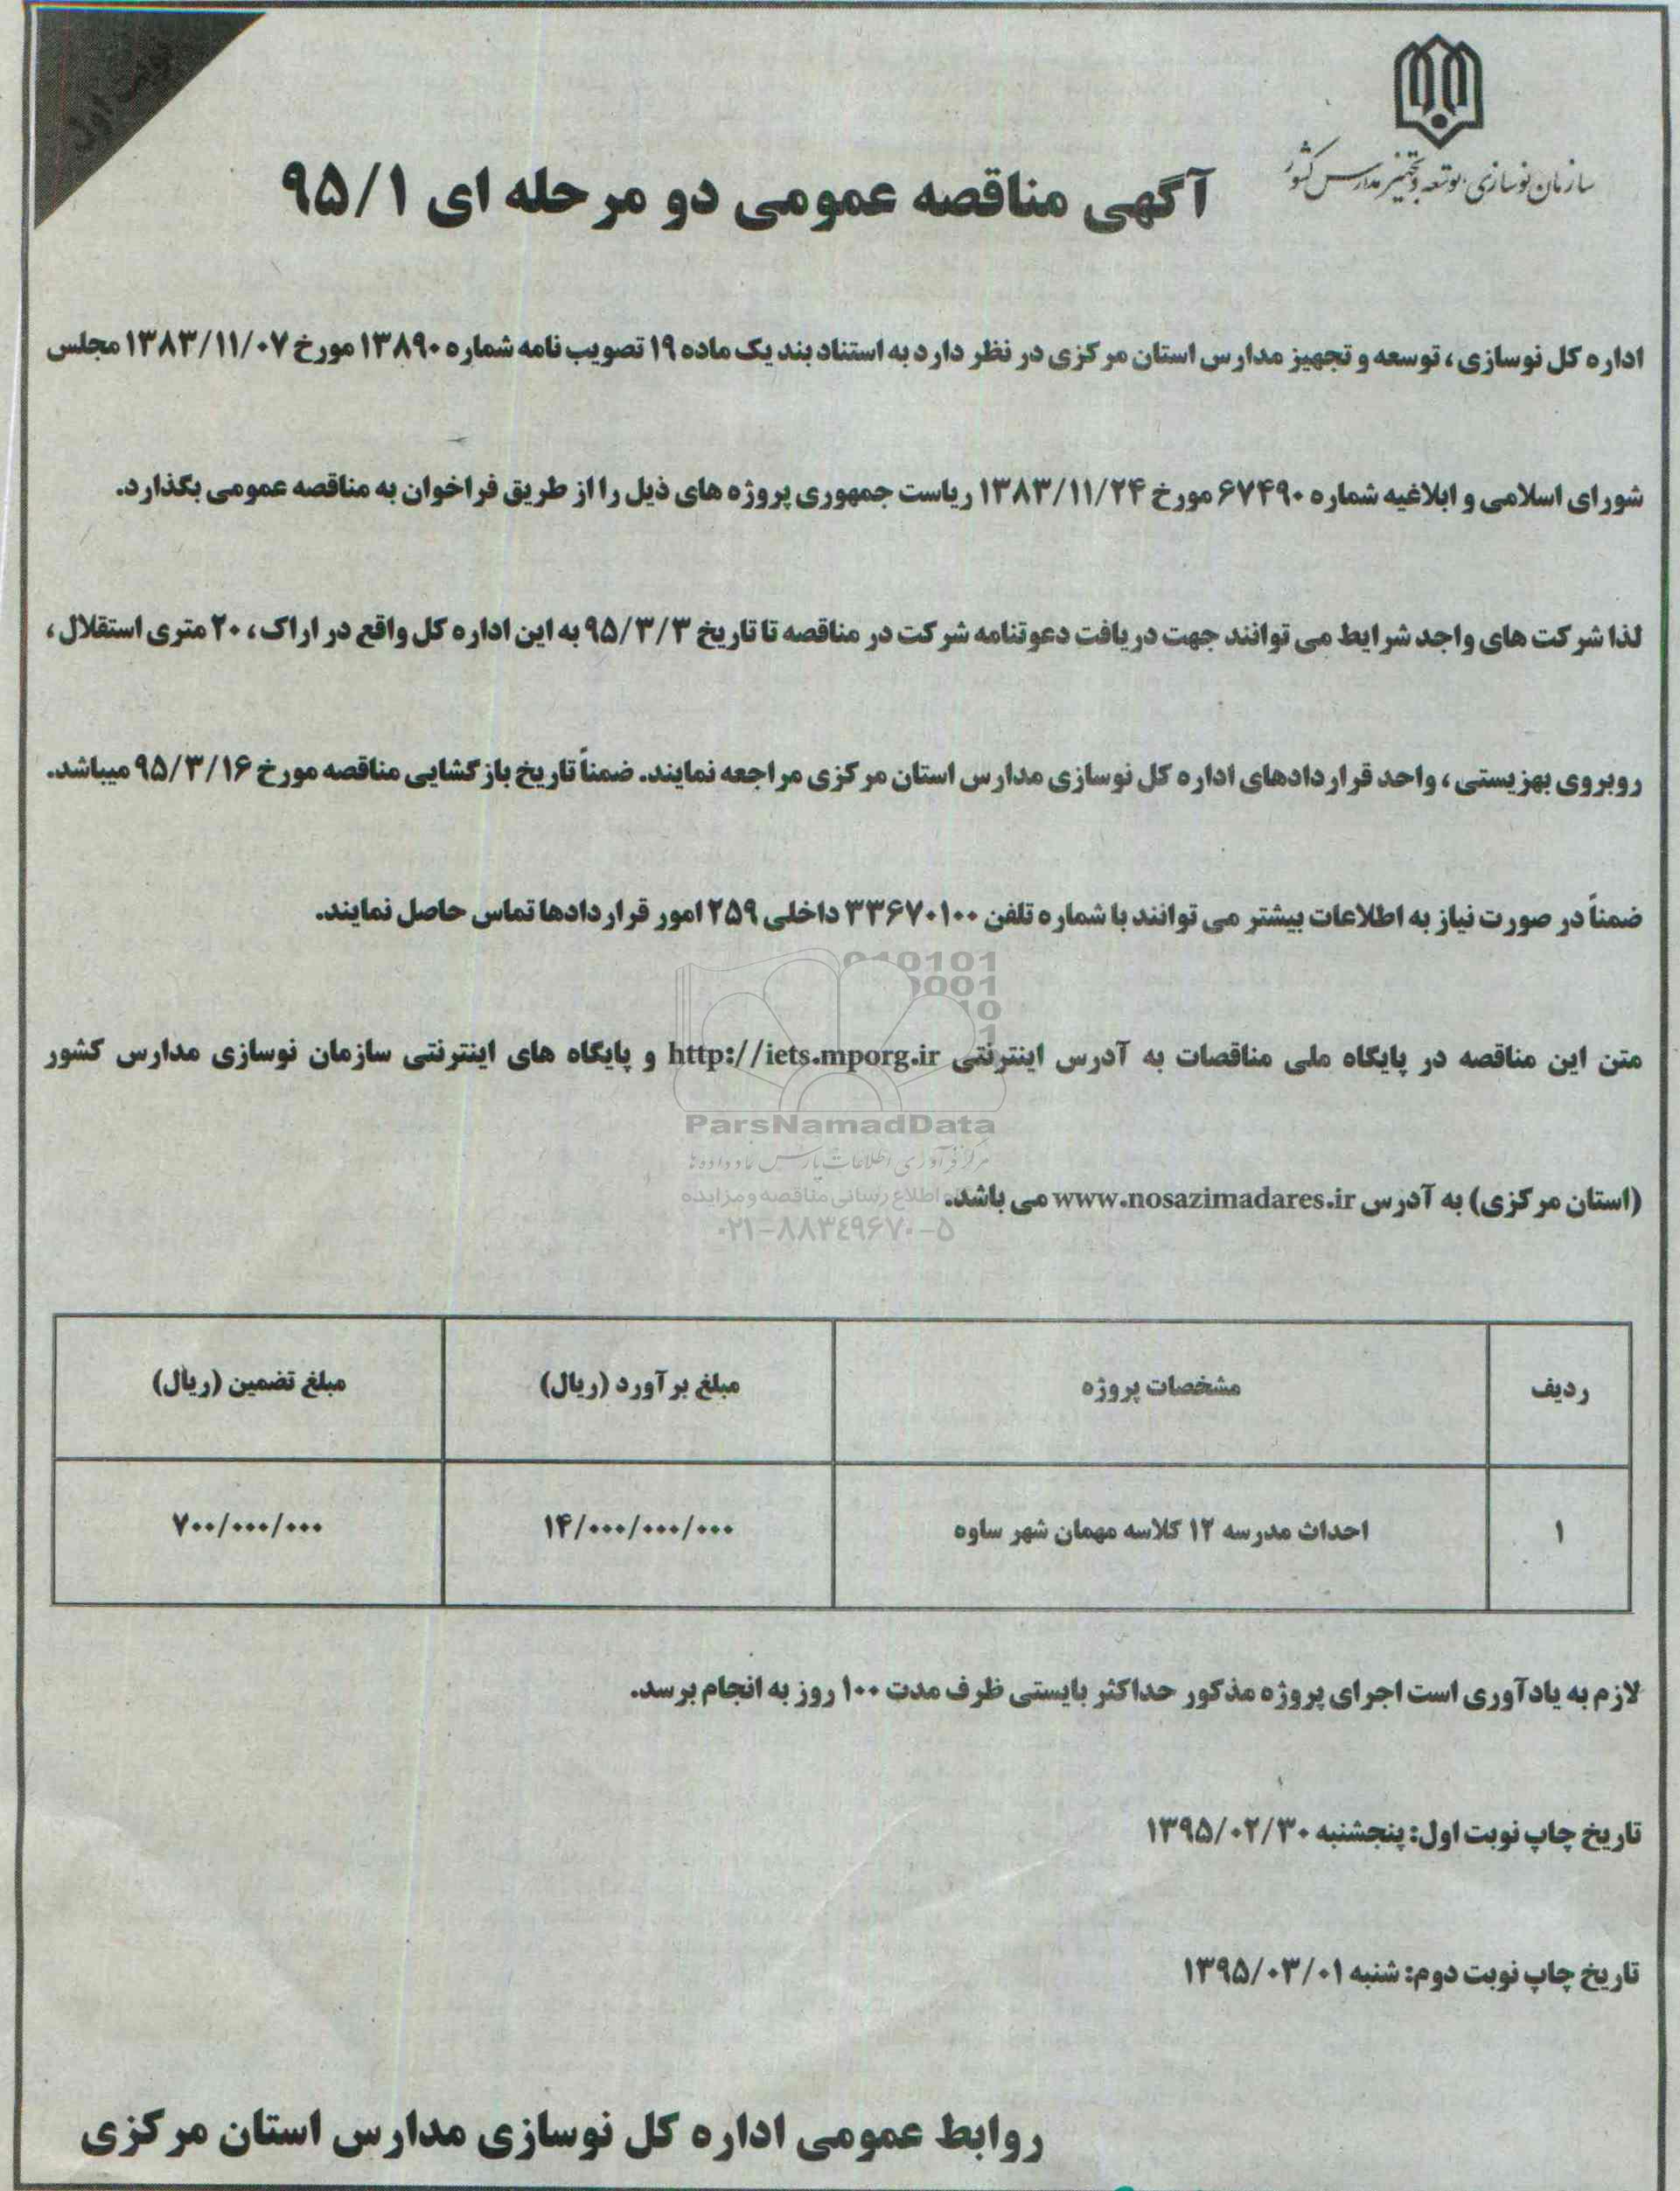 نوبت اول
سازمان نوسازی، توسعه و تجهیز مدارس کشور
آگهی مناقصه عمومی دو مرحله ای ۹۵/۱
اداره کل نوسازی، توسعه و تجهیز مدارس استان مرکزی در نظر دارد به استناد بند یک ماده ۱۹ تصویب نامه شماره ۱۳۸۹۰ مورخ ۱۳۸۳/۱۱/۰۷ مجلس
شورای اسلامی و ابلاغیه شماره ۶۷۴۹۰ مورخ ۱۳۸۳/۱۱/۲۴ ریاست جمهوری پروژه های ذیل را از طریق فراخوان به مناقصه عمومی بگذارد.
لذا شرکت های واجد شرایط می توانند جهت دریافت دعوتنامه شرکت در مناقصه تا تاریخ ۹۵/۳/۳ به این اداره کل واقع در اراک، ۲۰ متری استقلال،
روبروی بهزیستی، واحد قراردادهای اداره کل نوسازی مدارس استان مرکزی مراجعه نمایند. ضمناً تاریخ بازگشایی مناقصه مورخ ۹۵/۳/۱۶ میباشد.
ضمناً در صورت نیاز به اطلاعات بیشتر می توانند با شماره تلفن ۳۳۶۷۰۱۰۰ داخلی ۲۵۹ امور قراردادها تماس حاصل نمایند.
متن این مناقصه در پایگاه ملی مناقصات به آدرس اینترنتی http://iets.mporg.ir و پایگاه های اینترنتی سازمان نوسازی مدارس کشور
ParsNamadData
مرکز فرآوری اطلاعات پارس نماد داده ها
(استان مرکزی) به آدرس www.nosazimadares.ir می باشد.
اطلاع رسانی مناقصه و مزایده
۰۲۱-۸۸۳۴۹۶۷۰-۵
ردیف مشخصات پروژه مبلغ برآورد (ریال) مبلغ تضمین (ریال)
۱ احداث مدرسه ۱۲ کلاسه مهمان شهر ساوه ۱۴/۰۰۰/۰۰۰/۰۰۰ ۷۰۰/۰۰۰/۰۰۰
لازم به یادآوری است اجرای پروژه مذکور حداکثر بایستی ظرف مدت ۱۰۰ روز به انجام برسد.
تاریخ چاپ نوبت اول: پنجشنبه ۱۳۹۵/۰۲/۳۰
تاریخ چاپ نوبت دوم: شنبه ۱۳۹۵/۰۳/۰۱
روابط عمومی اداره کل نوسازی مدارس استان مرکزی